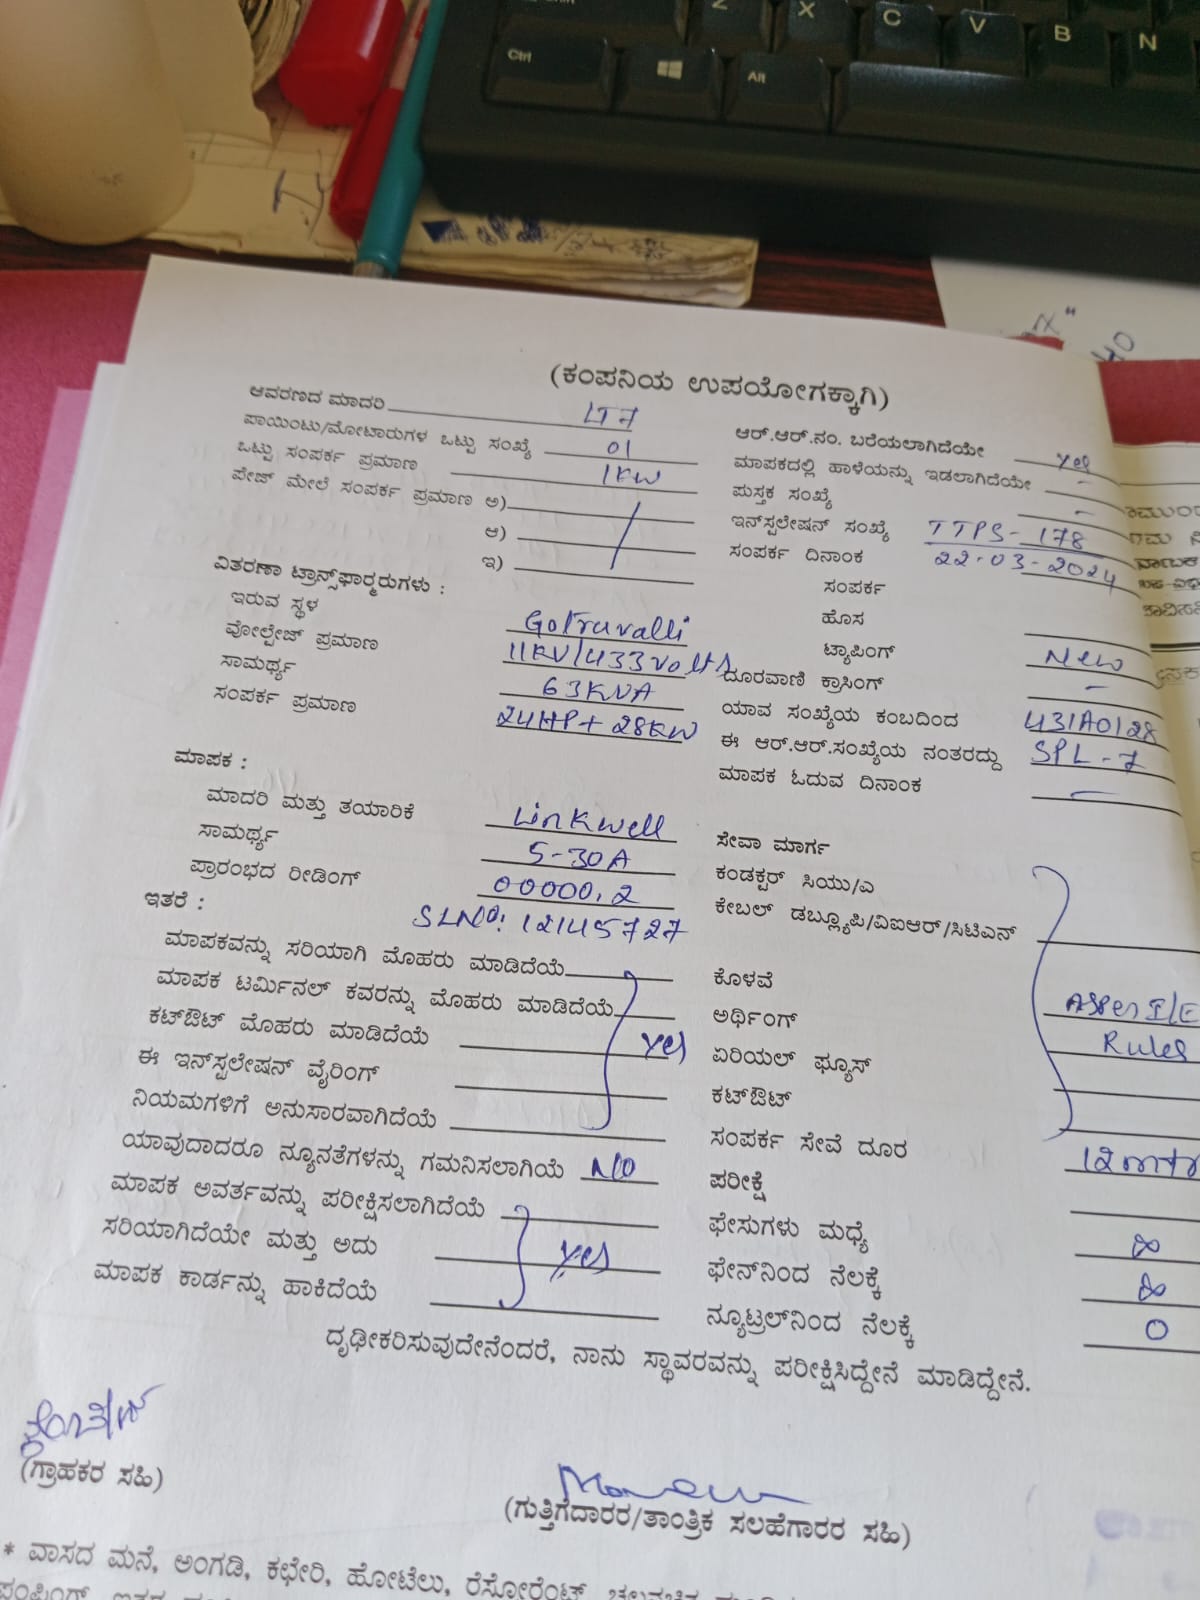 Ctrl
Alt
Z X C V B N
(ಕಂಪನಿಯ ಉಪಯೋಗಕ್ಕಾಗಿ)
ಆವರಣದ ಮಾದರಿ LT7
ಪಾಯಿಂಟು/ಮೋಟಾರುಗಳ ಒಟ್ಟು ಸಂಖ್ಯೆ 01
ಒಟ್ಟು ಸಂಪರ್ಕ ಪ್ರಮಾಣ 1KW
ಪೇಜ್ ಮೇಲೆ ಸಂಪರ್ಕ ಪ್ರಮಾಣ ಅ)
ಆ)
ಇ)
ವಿತರಣಾ ಟ್ರಾನ್ಸ್‌ಫಾರ್ಮರುಗಳು :
ಇರುವ ಸ್ಥಳ Gotruvalli
ವೋಲ್ಟೇಜ್ ಪ್ರಮಾಣ 11KV/433volts
ಸಾಮರ್ಥ್ಯ 63KVA
ಸಂಪರ್ಕ ಪ್ರಮಾಣ 24HP+28KW
ಮಾಪಕ :
ಮಾದರಿ ಮತ್ತು ತಯಾರಿಕೆ Linkwell
ಸಾಮರ್ಥ್ಯ 5-30A
ಪ್ರಾರಂಭದ ರೀಡಿಂಗ್ 00000.2
ಇತರೆ : SLNO: 12145727
ಮಾಪಕವನ್ನು ಸರಿಯಾಗಿ ಮೊಹರು ಮಾಡಿದೆಯೆ
ಮಾಪಕ ಟರ್ಮಿನಲ್ ಕವರನ್ನು ಮೊಹರು ಮಾಡಿದೆಯೆ
ಕಟ್‌ಔಟ್ ಮೊಹರು ಮಾಡಿದೆಯೆ yes
ಈ ಇನ್‌ಸ್ಟಲೇಷನ್ ವೈರಿಂಗ್
ನಿಯಮಗಳಿಗೆ ಅನುಸಾರವಾಗಿದೆಯೆ
ಯಾವುದಾದರೂ ನ್ಯೂನತೆಗಳನ್ನು ಗಮನಿಸಲಾಗಿಯೆ NO
ಮಾಪಕ ಅವರ್ತವನ್ನು ಪರೀಕ್ಷಿಸಲಾಗಿದೆಯೆ
ಸರಿಯಾಗಿದೆಯೇ ಮತ್ತು ಅದು yes
ಮಾಪಕ ಕಾರ್ಡನ್ನು ಹಾಕಿದೆಯೆ
ಆರ್.ಆರ್.ನಂ. ಬರೆಯಲಾಗಿದೆಯೇ yes
ಮಾಪಕದಲ್ಲಿ ಹಾಳೆಯನ್ನು ಇಡಲಾಗಿದೆಯೇ -
ಪುಸ್ತಕ ಸಂಖ್ಯೆ -
ಇನ್‌ಸ್ಟಲೇಷನ್ ಸಂಖ್ಯೆ TTPS-178
ಸಂಪರ್ಕ ದಿನಾಂಕ 22-03-2024
ಸಂಪರ್ಕ
ಹೊಸ
ಟ್ಯಾಪಿಂಗ್ New
ದೂರವಾಣಿ ಕ್ರಾಸಿಂಗ್ -
ಯಾವ ಸಂಖ್ಯೆಯ ಕಂಬದಿಂದ 431A0128
ಈ ಆರ್.ಆರ್.ಸಂಖ್ಯೆಯ ನಂತರದ್ದು SPL-7
ಮಾಪಕ ಓದುವ ದಿನಾಂಕ -
ಸೇವಾ ಮಾರ್ಗ
ಕಂಡಕ್ಟರ್ ಸಿಯು/ಎ
ಕೇಬಲ್ ಡಬ್ಲ್ಯೂಪಿ/ವಿಐಆರ್/ಸಿಟಿಎನ್
ಕೊಳವೆ
ಅರ್ಥಿಂಗ್ ASPer I/E
ಏರಿಯಲ್ ಫ್ಯೂಸ್ Rules
ಕಟ್‌ಔಟ್
ಸಂಪರ್ಕ ಸೇವೆ ದೂರ 12mtr
ಪರೀಕ್ಷೆ
ಫೇಸುಗಳು ಮಧ್ಯೆ ∞
ಫೇನ್‌ನಿಂದ ನೆಲಕ್ಕೆ ∞
ನ್ಯೂಟ್ರಲ್‌ನಿಂದ ನೆಲಕ್ಕೆ 0
ದೃಢೀಕರಿಸುವುದೇನೆಂದರೆ, ನಾನು ಸ್ಥಾವರವನ್ನು ಪರೀಕ್ಷಿಸಿದ್ದೇನೆ ಮಾಡಿದ್ದೇನೆ.
(ಗ್ರಾಹಕರ ಸಹಿ)
(ಗುತ್ತಿಗೆದಾರರ/ತಾಂತ್ರಿಕ ಸಲಹೆಗಾರರ ಸಹಿ)
* ವಾಸದ ಮನೆ, ಅಂಗಡಿ, ಕಛೇರಿ, ಹೋಟೆಲು, ರೆಸ್ಟೋರೆಂಟ್